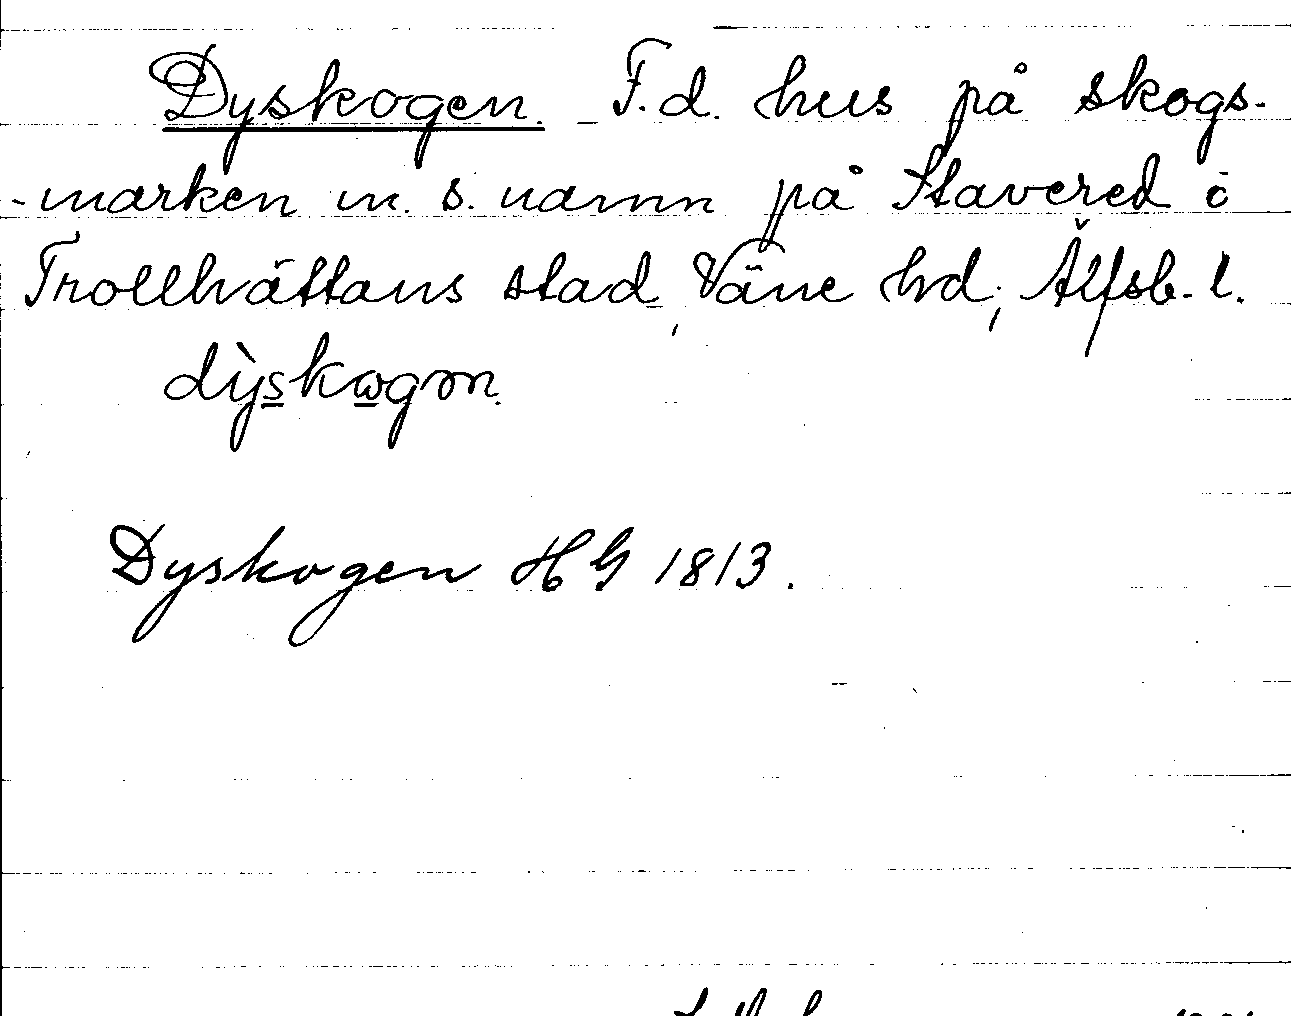 Dyskogen. F.d. hus på skogs-
-marken m. s. namn på Stavered i
Trollhättans stad, Väne hd, Älfsb. l.
dỳskωgən.
Dyskogen HG 1813.